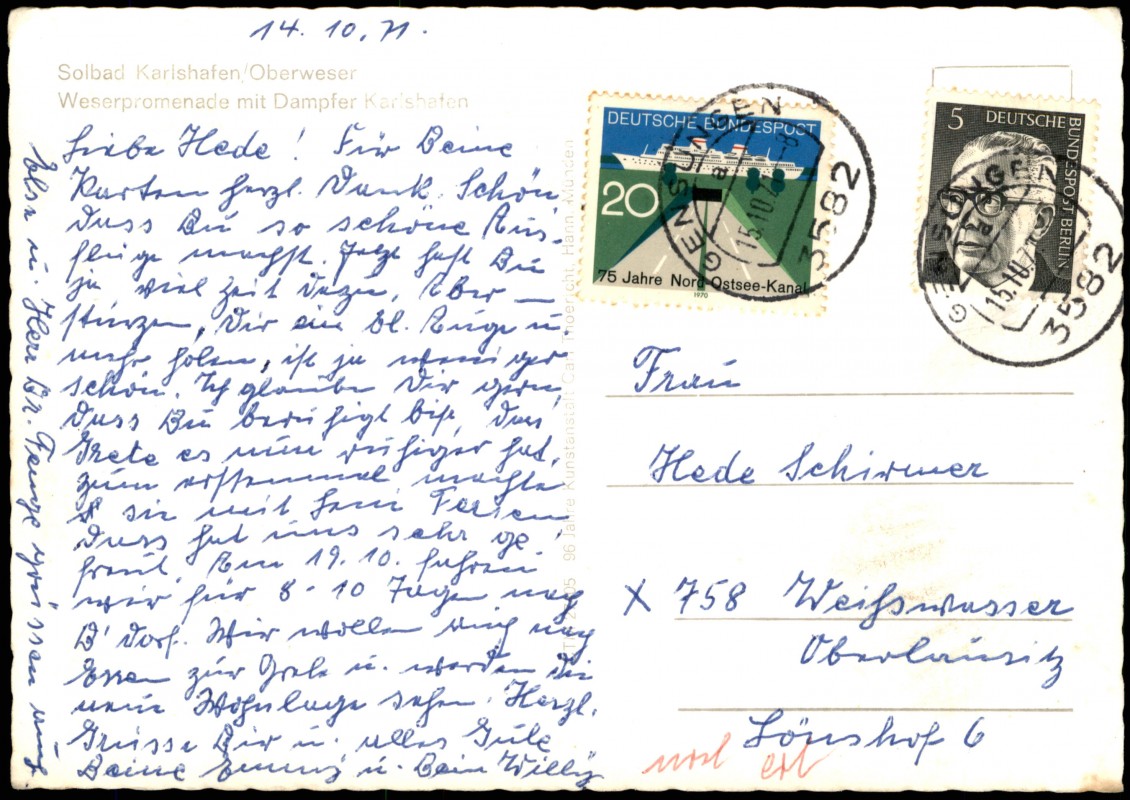 14.10.71.
Solbad Karlshafen/Oberweser
Weserpromenade mit Dampfer Karlshafen
Liebe Hede! Für Deine
Karten herzl. Dank. Schön
dass Du so schöne Aus-
flüge machst. Jetzt hast Du
ja viel Zeit dazu, Aber
Dir ein bl. Auge u.
mehr holen, ist ja weniger
schön. Ich glaube Dir gern,
dass Du beruhigt bist, dass
Grete es nun ruhiger hat,
zum erstenmal machte
sie mit Ferien
Dass hat uns sehr ge-
freut. Am 19.10. fahren
wir für 8-10 Tagen nach
D'dorf. Wir wollen auch nach
Essen zur Grete u. werden die
neue Wohnlage sehen. Herzl.
Grüsse Dir u. alles Gute
Deine Emmy u. Dein Willy
Else u. Herr Dr. grüssen auch
96 Jahre Kunstanstalt Carl Thoericht, Hann. Münden
DEUTSCHE BUNDESPOST
20
75 Jahre Nord-Ostsee-Kanal
1970
GENSUNGEN
a
15.10.7
3582
5 DEUTSCHE
BUNDESPOST BERLIN
GENSUNGEN
15.10.7
3582
Frau
Hede Schirmer
X 758 Weißwasser
Oberlausitz
Lönshof 6